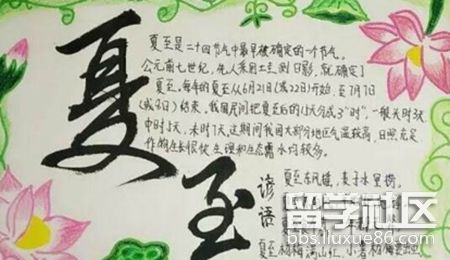 夏至
夏至是二十四节气中最早被确定的一个节气。
公元前七世纪,先人采用土圭测日影,就确定了
夏至。每年的夏至从6月21日(或22日)开始,至7月7日
(或8日)结束。我国民间把夏至后的15天分成3"时",一般头时3天
中时5天,末时7天,这期间我国大部分地区气温较高,日照充足
作物生长很快,生理和生态需水均较多。
谚语
夏至东风摇,麦子水里捞。
留学社区
bbs.liuxue86.com